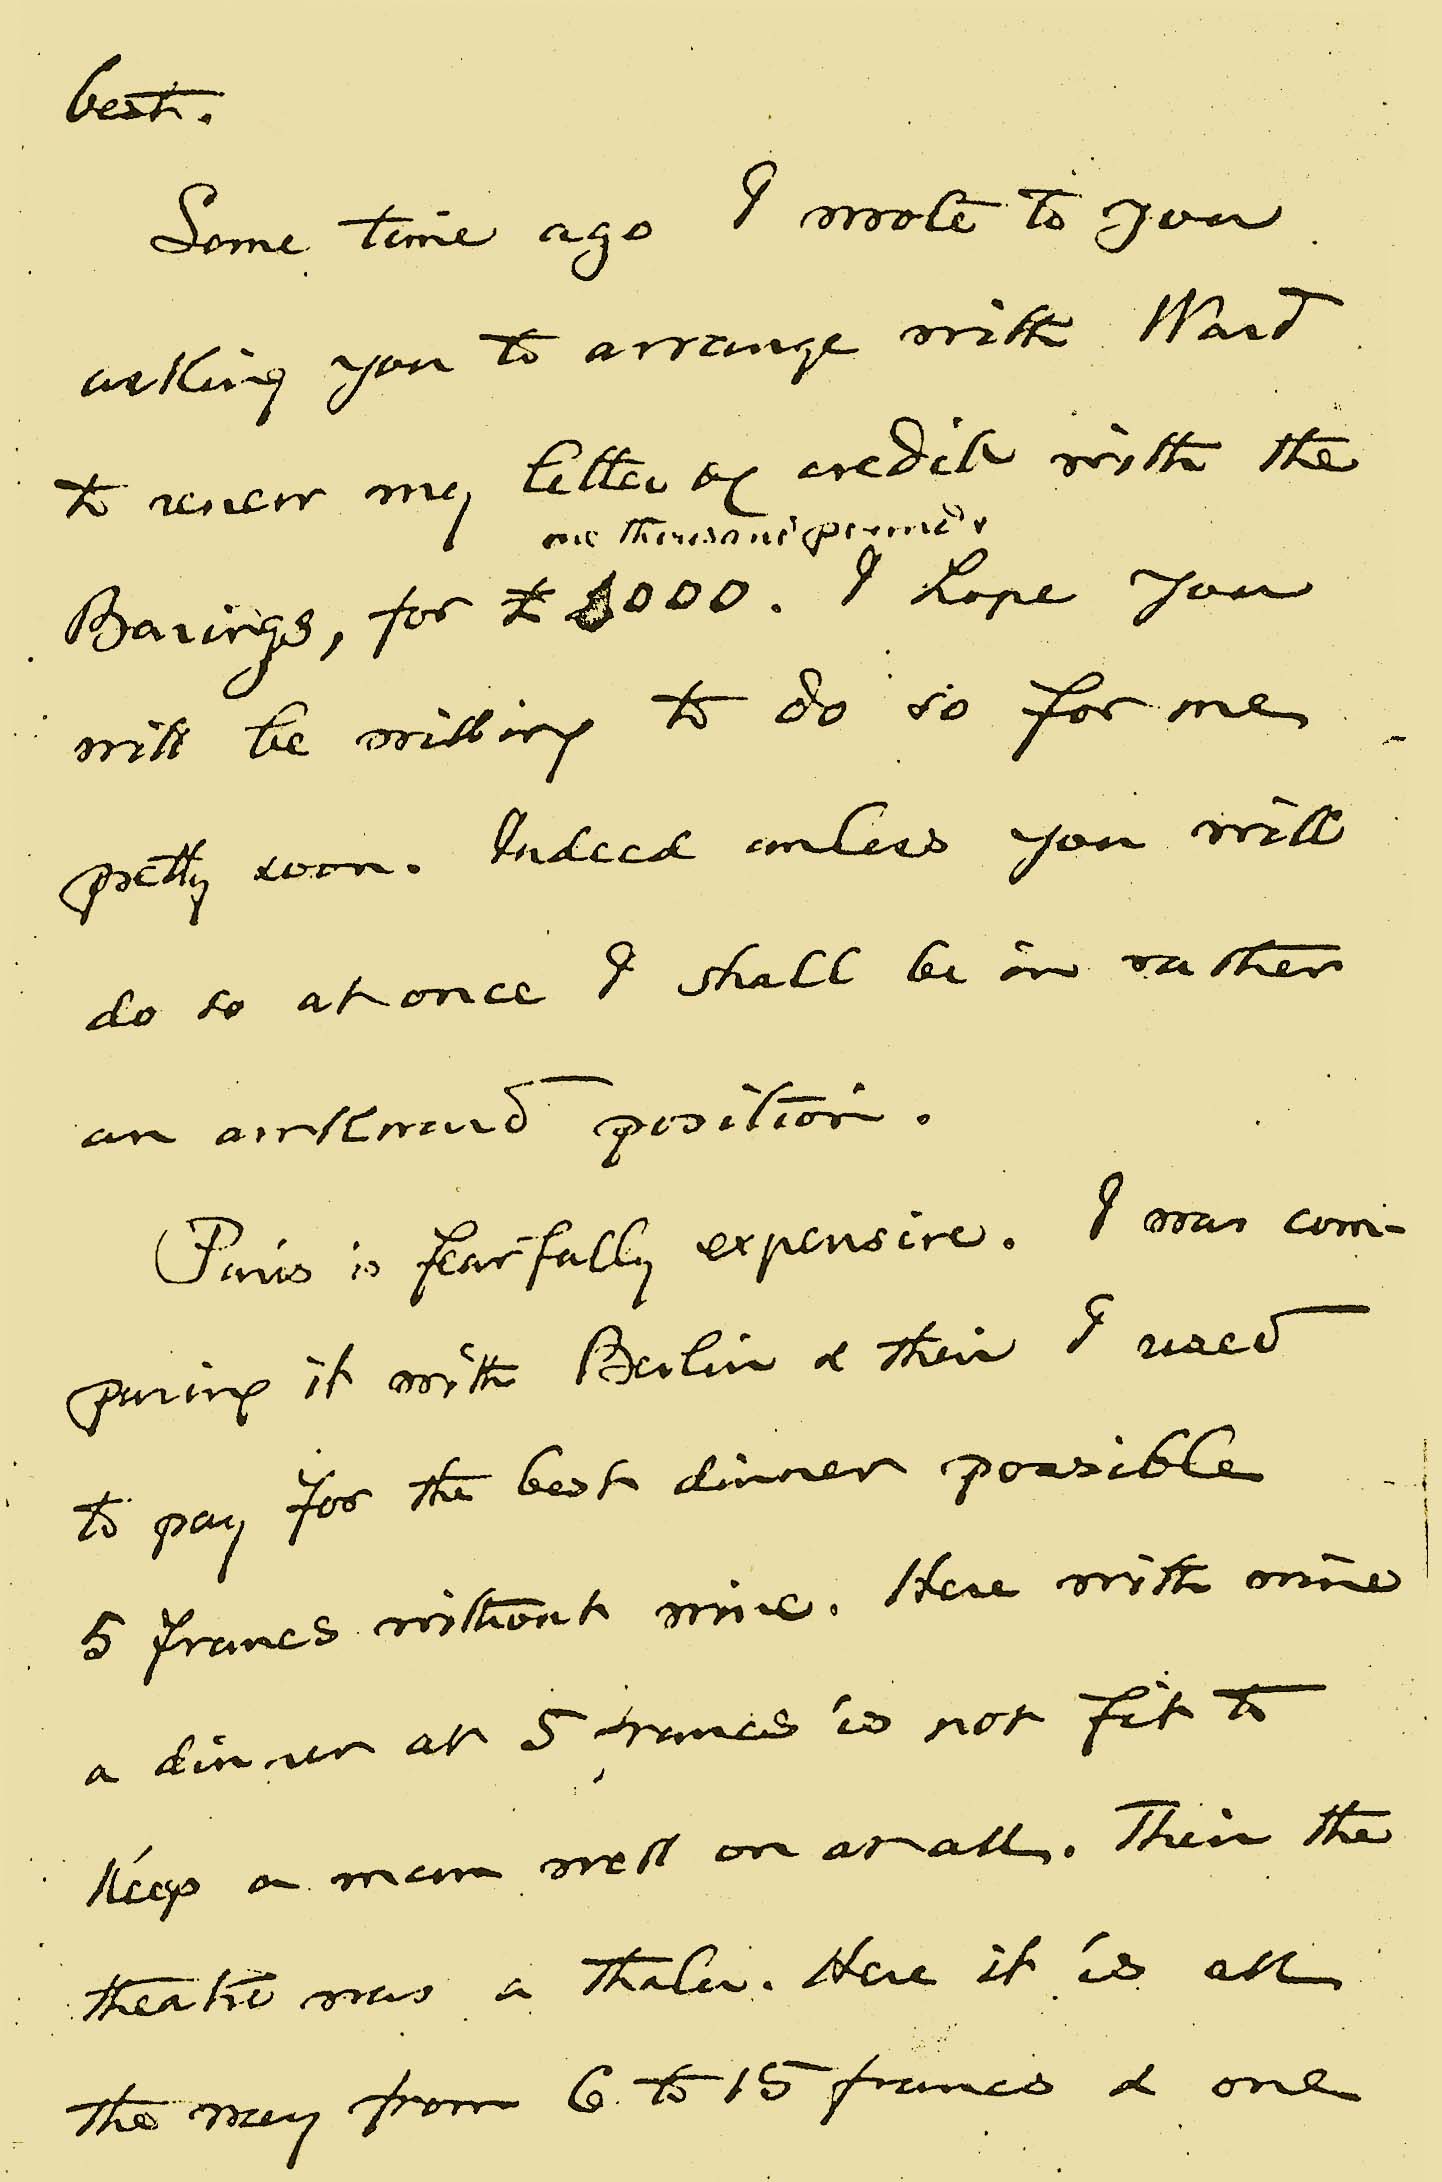 best.
Some time ago I wrote to you
asking you to arrange with Ward
to renew my letter of credit with the
one thousand pounds
Barings, for £ 1000. I hope you
will be willing to do so for me
pretty soon. Indeed unless you will
do so at once I shall be in rather
an awkward position.
Paris is fearfully expensive. I was com-
paring it with Berlin & their I used
to pay for the best dinner possible
5 francs without wine. Here with wine
a dinner at 5 francs is not fit to
keep a man well on at all. Their the
theatre was a thaler. Here it is all
the way from 6 to 15 francs & one